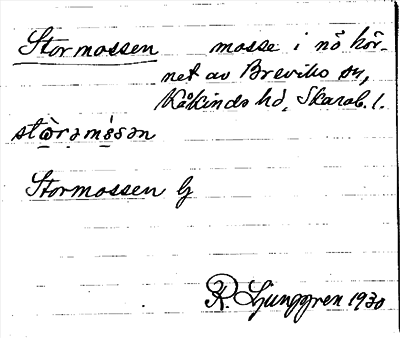 Stormossen mosse i nö hör-
net av Breviks sn,
Kåkinds hd, Skarab. l.
stòramósən
Stormossen Gj
R. Ljunggren 1930